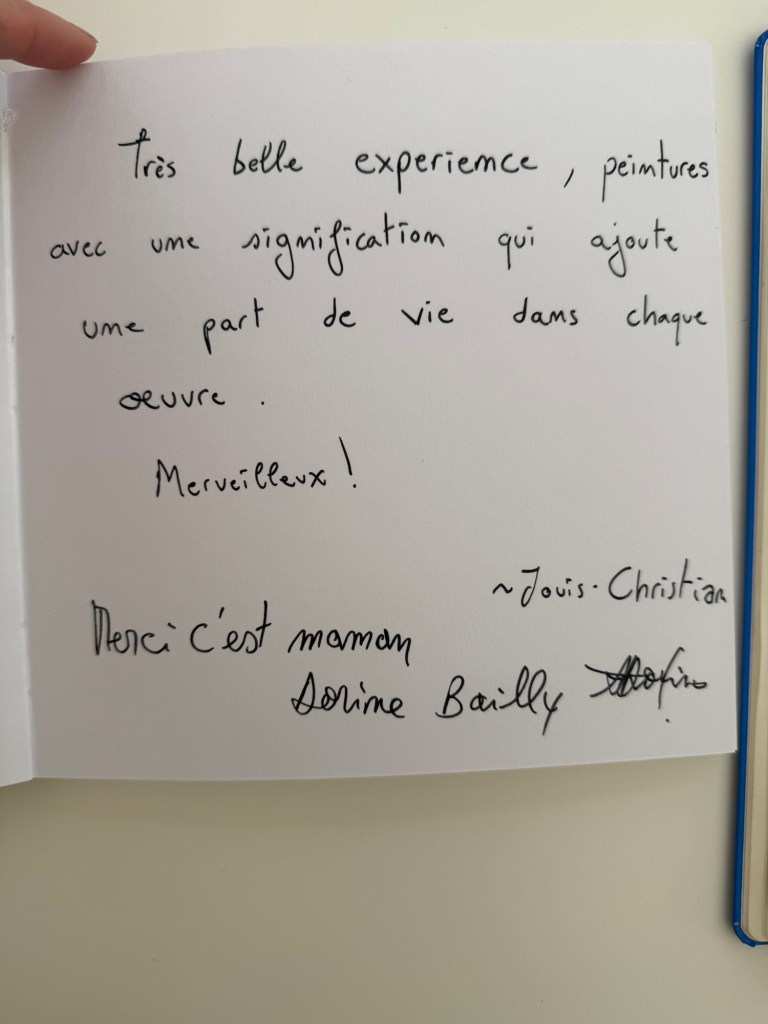 Très belle experience, peintures
avec une signification qui ajoute
une part de vie dans chaque
œuvre.
Merveilleux !
~Jouis-Christian
Merci c'est maman
Dorine Bailly